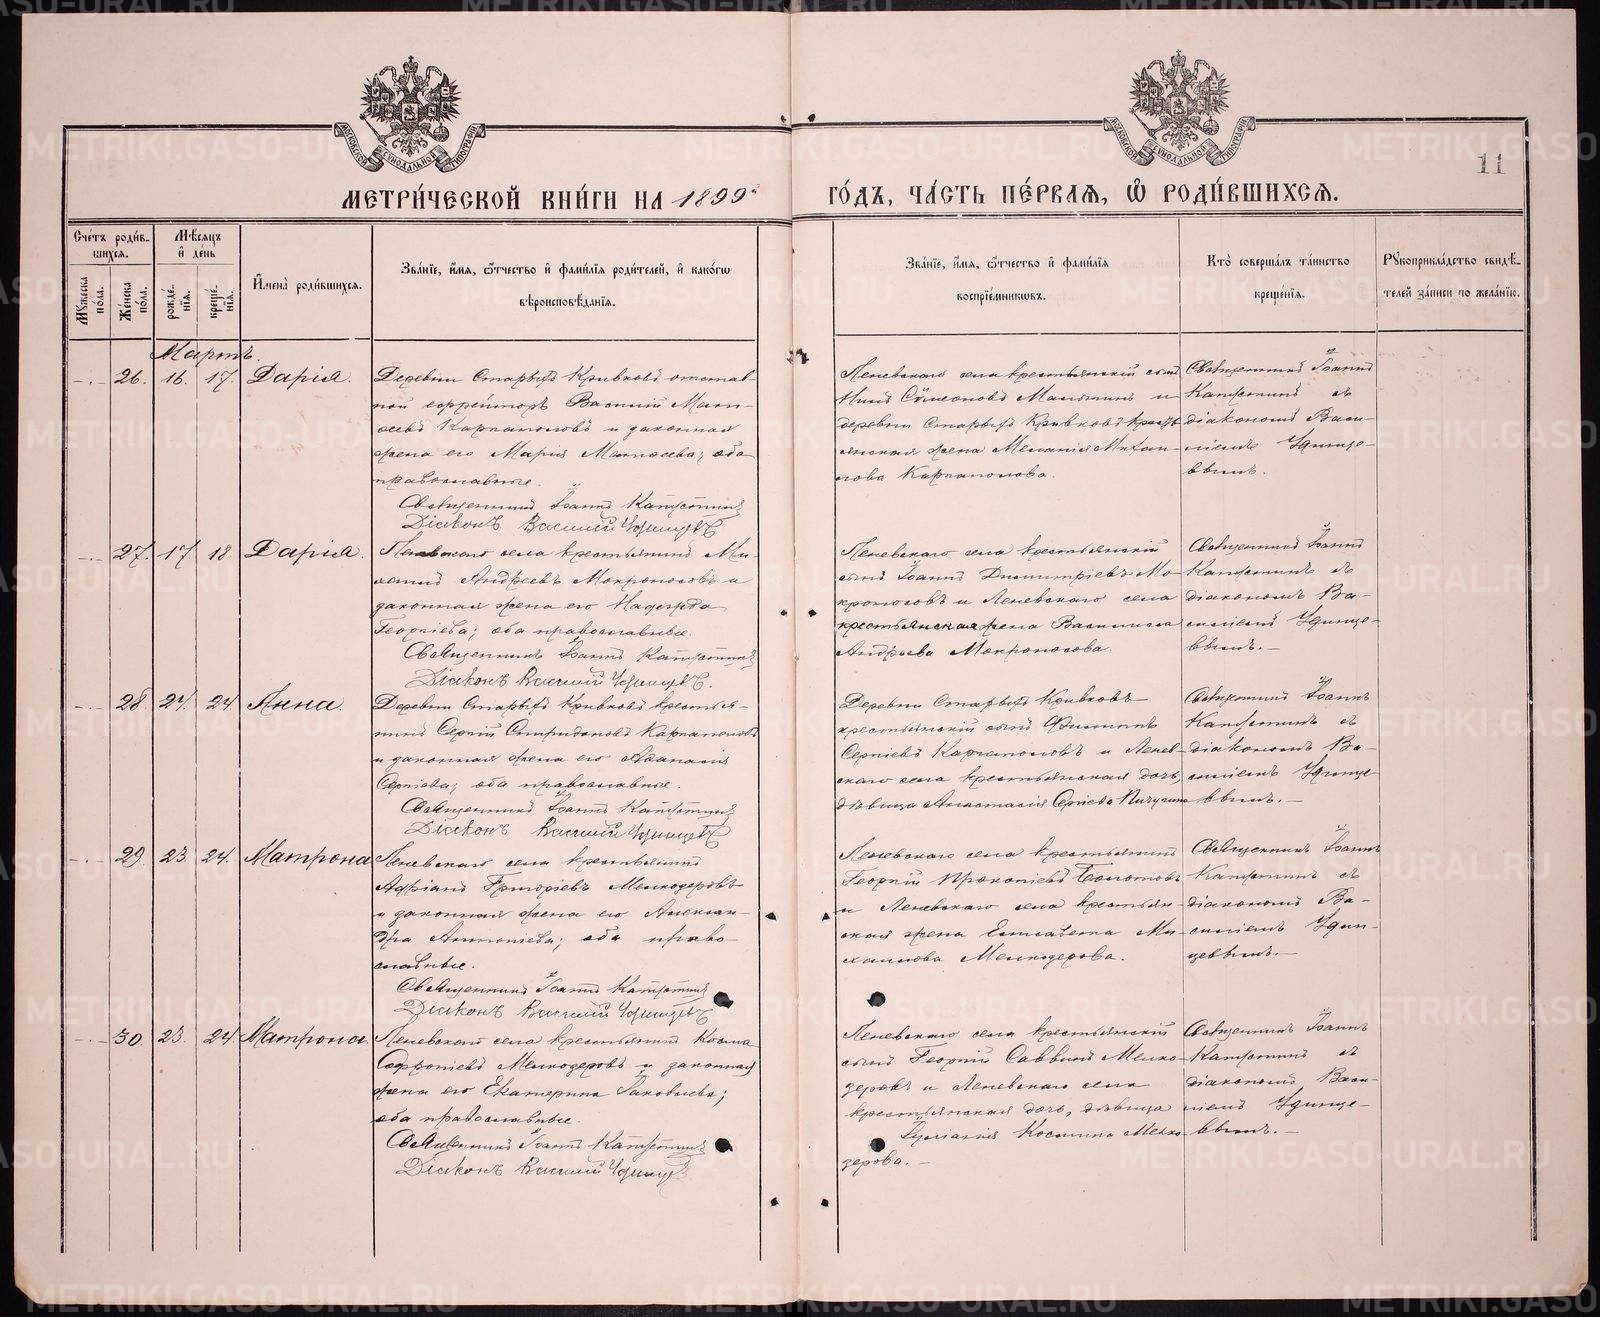 МЕТРИ́ЧЕСКОЙ КНИ́ГИ НА 1899й
ГО́ДЪ, ЧА́СТЬ ПЕ́РВАЯ, Ѿ РОДИ́ВШИХСЯ.
11
Сче́тъ роди́вшихся.
Мꙋ́жеска по́ла.
Же́нска по́ла.
Мѣ́сяцъ и҆ де́нь
рожде́нїя.
креще́нїя.
И҆мена̀ роди́вшихся.
Зва́нїе, и҆́мя, ѻ҆́тчество и҆ фами́лїя роди́телей, и҆ како́гѡ
вѣроисповѣ́данїя.
Зва́нїе, и҆́мя, ѻ҆́тчество и҆ фами́лїя
воспрїе́мниковъ.
Кто̀ соверша́лъ та́инство
креще́нїя.
Рꙋкоприкла́дство свидѣ́-
телей за́писи по жела́нїю.
Мартъ.
26. 16. 17. Дарія.
Деревни Старыхъ Кривковъ отстав-
ной ефрейторъ Василій Мат-
ѳеевъ Карпаполовъ и законная
жена его Марія Матѳеева; оба
православные.
Священникъ Іоаннъ Капустинъ
Діаконъ Василій Удинцевъ
Леневскаго села крестьянскій сынъ
Нилъ Сѵмеоновъ Малыгинъ и
деревни Старыхъ Кривковъ кресть
янская жена Меланія Михаи-
лова Карпаполова.
Священникъ Іоаннъ
Капустинъ съ
діакономъ Васи-
ліемъ Удинце-
вымъ.
27. 17. 18. Дарія.
Леневскаго села крестьянинъ Ми-
хаилъ Андреевъ Мокроносовъ и
законная жена его Надежда
Георгіева; оба православные.
Священникъ Іоаннъ Капустинъ
Діаконъ Василій Удинцевъ.
Леневскаго села крестьянскій
сынъ Іоаннъ Димитріевъ Мо-
кроносовъ и Леневскаго села
крестьянская жена Василисса
Андреева Мокроносова.
Священникъ Іоаннъ
Капустинъ съ
діакономъ Ва-
силіемъ Удинце-
вымъ.—
28. 24. 24. Анна.
Деревни Старыхъ Кривковъ крестья-
нинъ Сергій Спиридоновъ Карпаполовъ
и законная жена его Аѳанасія
Сергіева; оба православные.
Священникъ Іоаннъ Капустинъ
Діаконъ Василій Удинцевъ
Деревни Старыхъ Кривковъ
крестьянскій сынъ Филиппъ
Сергіевъ Карпаполовъ и Ленев-
скаго села крестьянская дочь,
дѣвица Анастасія Сергіева Пичугина
Священникъ Іоаннъ
Капустинъ съ
діакономъ Ва-
силіемъ Удинце-
вымъ.—
29. 23. 24. Матрона
Леневскаго села крестьянинъ
Адріанъ Григоріевъ Мелкозеровъ
и законная жена его Алексан-
дра Антоніева; оба право-
славные.
Священникъ Іоаннъ Капустинъ
Діаконъ Василій Удинцевъ
Леневскаго села крестьянинъ
Георгій Прокопіевъ Болотовъ
и Леневскаго села крестьян-
ская жена Елисавета Ми-
хаилова Мелкозерова.
Священникъ Іоаннъ
Капустинъ съ
діакономъ Ва-
силіемъ Удин-
цевымъ.—
30. 23. 24. Матрона.
Леневскаго села крестьянинъ Косма
Софроніевъ Мелкозеровъ и законная
жена его Екатерина Іаковлева;
оба православные.
Священникъ Іоаннъ Капустинъ
Діаконъ Василій Удинцевъ
Леневскаго села крестьянскій
сынъ Георгій Саввинъ Мелко-
зеровъ и Леневскаго села
крестьянская дочь, дѣвица
Іуліанія Космина Мелко-
зерова.—
Священникъ Іоаннъ
Капустинъ съ
діакономъ Васи-
ліемъ Удинце-
вымъ.—
METRIKI.GASO-URAL.RU